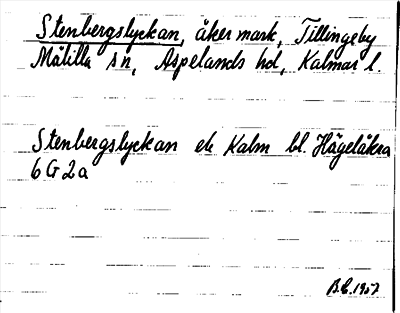 Stenbergslyckan, åkermark, Tillingeby
Målilla sn, Aspelands hd, Kalmar l.
Stenbergslyckan ek Kalm bl. Hägelåkra
6 G 2a
B.E. 1957